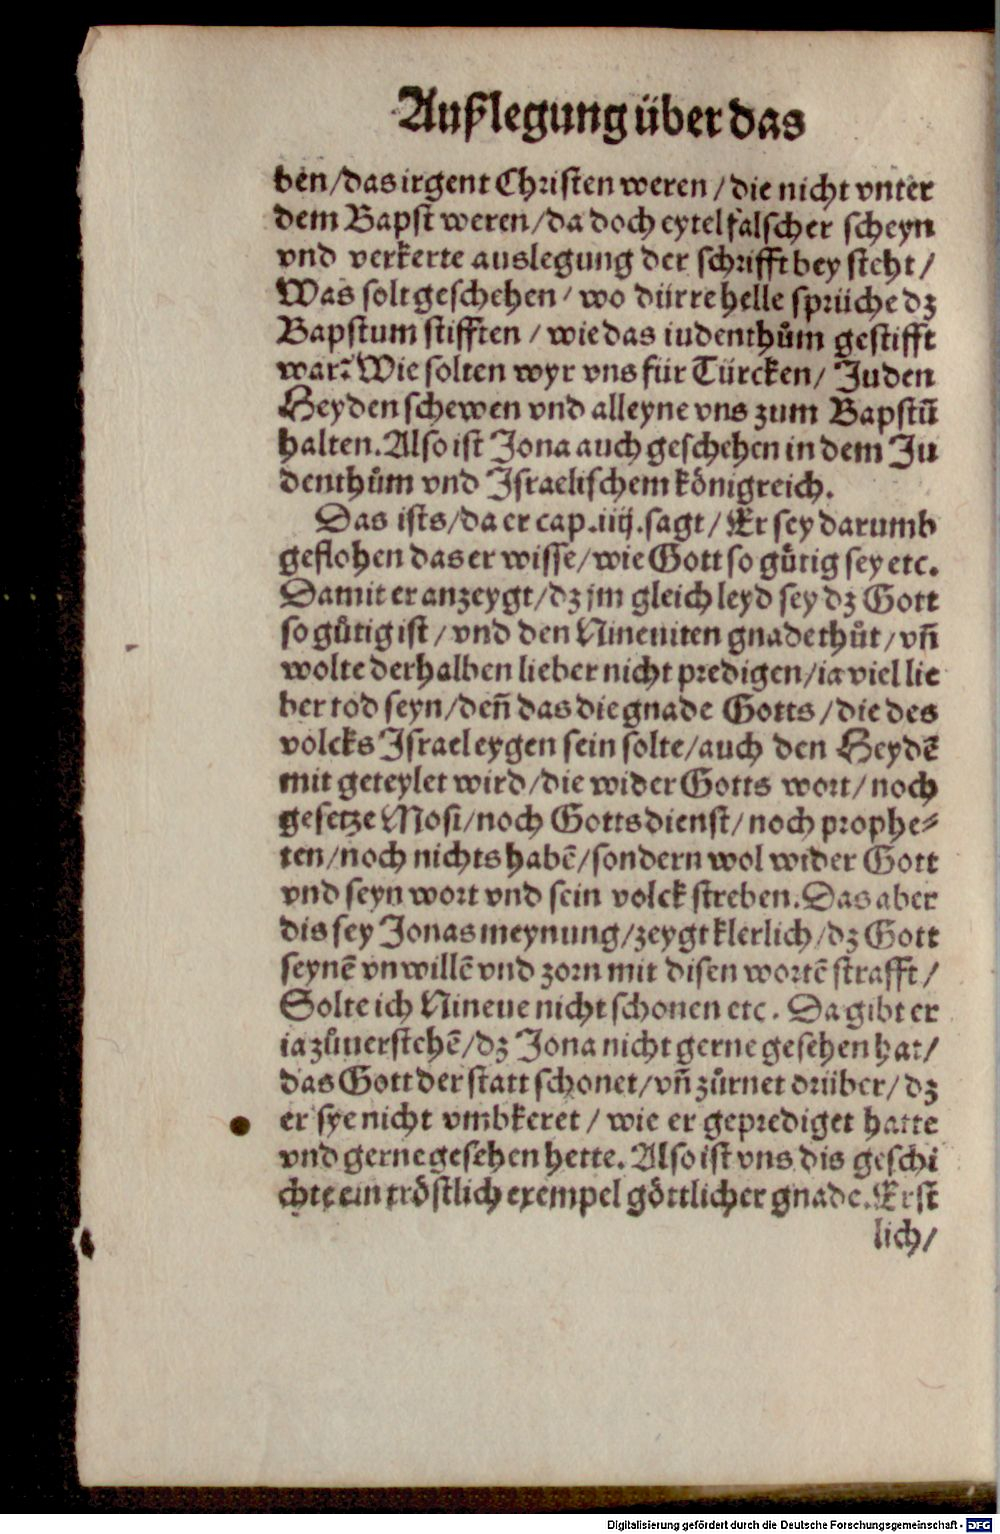 Außlegung über das
ben/das irgent Christen weren/die nicht vnter
dem Bapst weren/da doch eytel falscher scheyn
vnd verkerte auslegung der schrifft bey steht/
Was solt geschehen/wo dürre helle sprüche dz
Bapstum stifften/wie das iudenthům gestifft
war? Wie solten wyr vns für Türcken/Juden
Heyden schewen vnd alleyne vns zum Bapstū
halten. Also ist Jona auch geschehen in dem Ju
denthům vnd Israelischem königreich.
Das ists/da er cap.iiij.sagt/Er sey darumb
geflohen das er wisse/wie Gott so gůtig sey etc.
Damit er anzeygt/dz jm gleich leyd sey dz Gott
so gůtig ist/vnd den Niniuiten gnade thůt/vñ
wolte derhalben lieber nicht predigen/ia viel lie
ber tod seyn/deñ das die gnade Gotts/die des
volcks Israel eygen sein solte/auch den Heydē
mit geteylet wird/die wider Gotts wort/noch
gesetze Mosi/noch Gottsdienst/noch prophe⸗
ten/noch nichts habē/sondern wol wider Gott
vnd seyn wort vnd sein volck streben. Das aber
dis sey Jonas meynung/zeygt klerlich/dz Gott
seynē vnwillē vnd zorn mit disen wortē strafft/
Solte ich Nineue nicht schonen etc. Da gibt er
ia zůuerstehē/dz Jona nicht gerne gesehen hat/
das Gott der statt schonet/vñ zůrnet drüber/dz
er sye nicht vmbkeret/wie er geprediget hatte
vnd gerne gesehen hette. Also ist vns dis geschi
chte ein tröstlich exempel göttlicher gnade. Erst
lich/
Digitalisierung gefördert durch die Deutsche Forschungsgemeinschaft - DFG